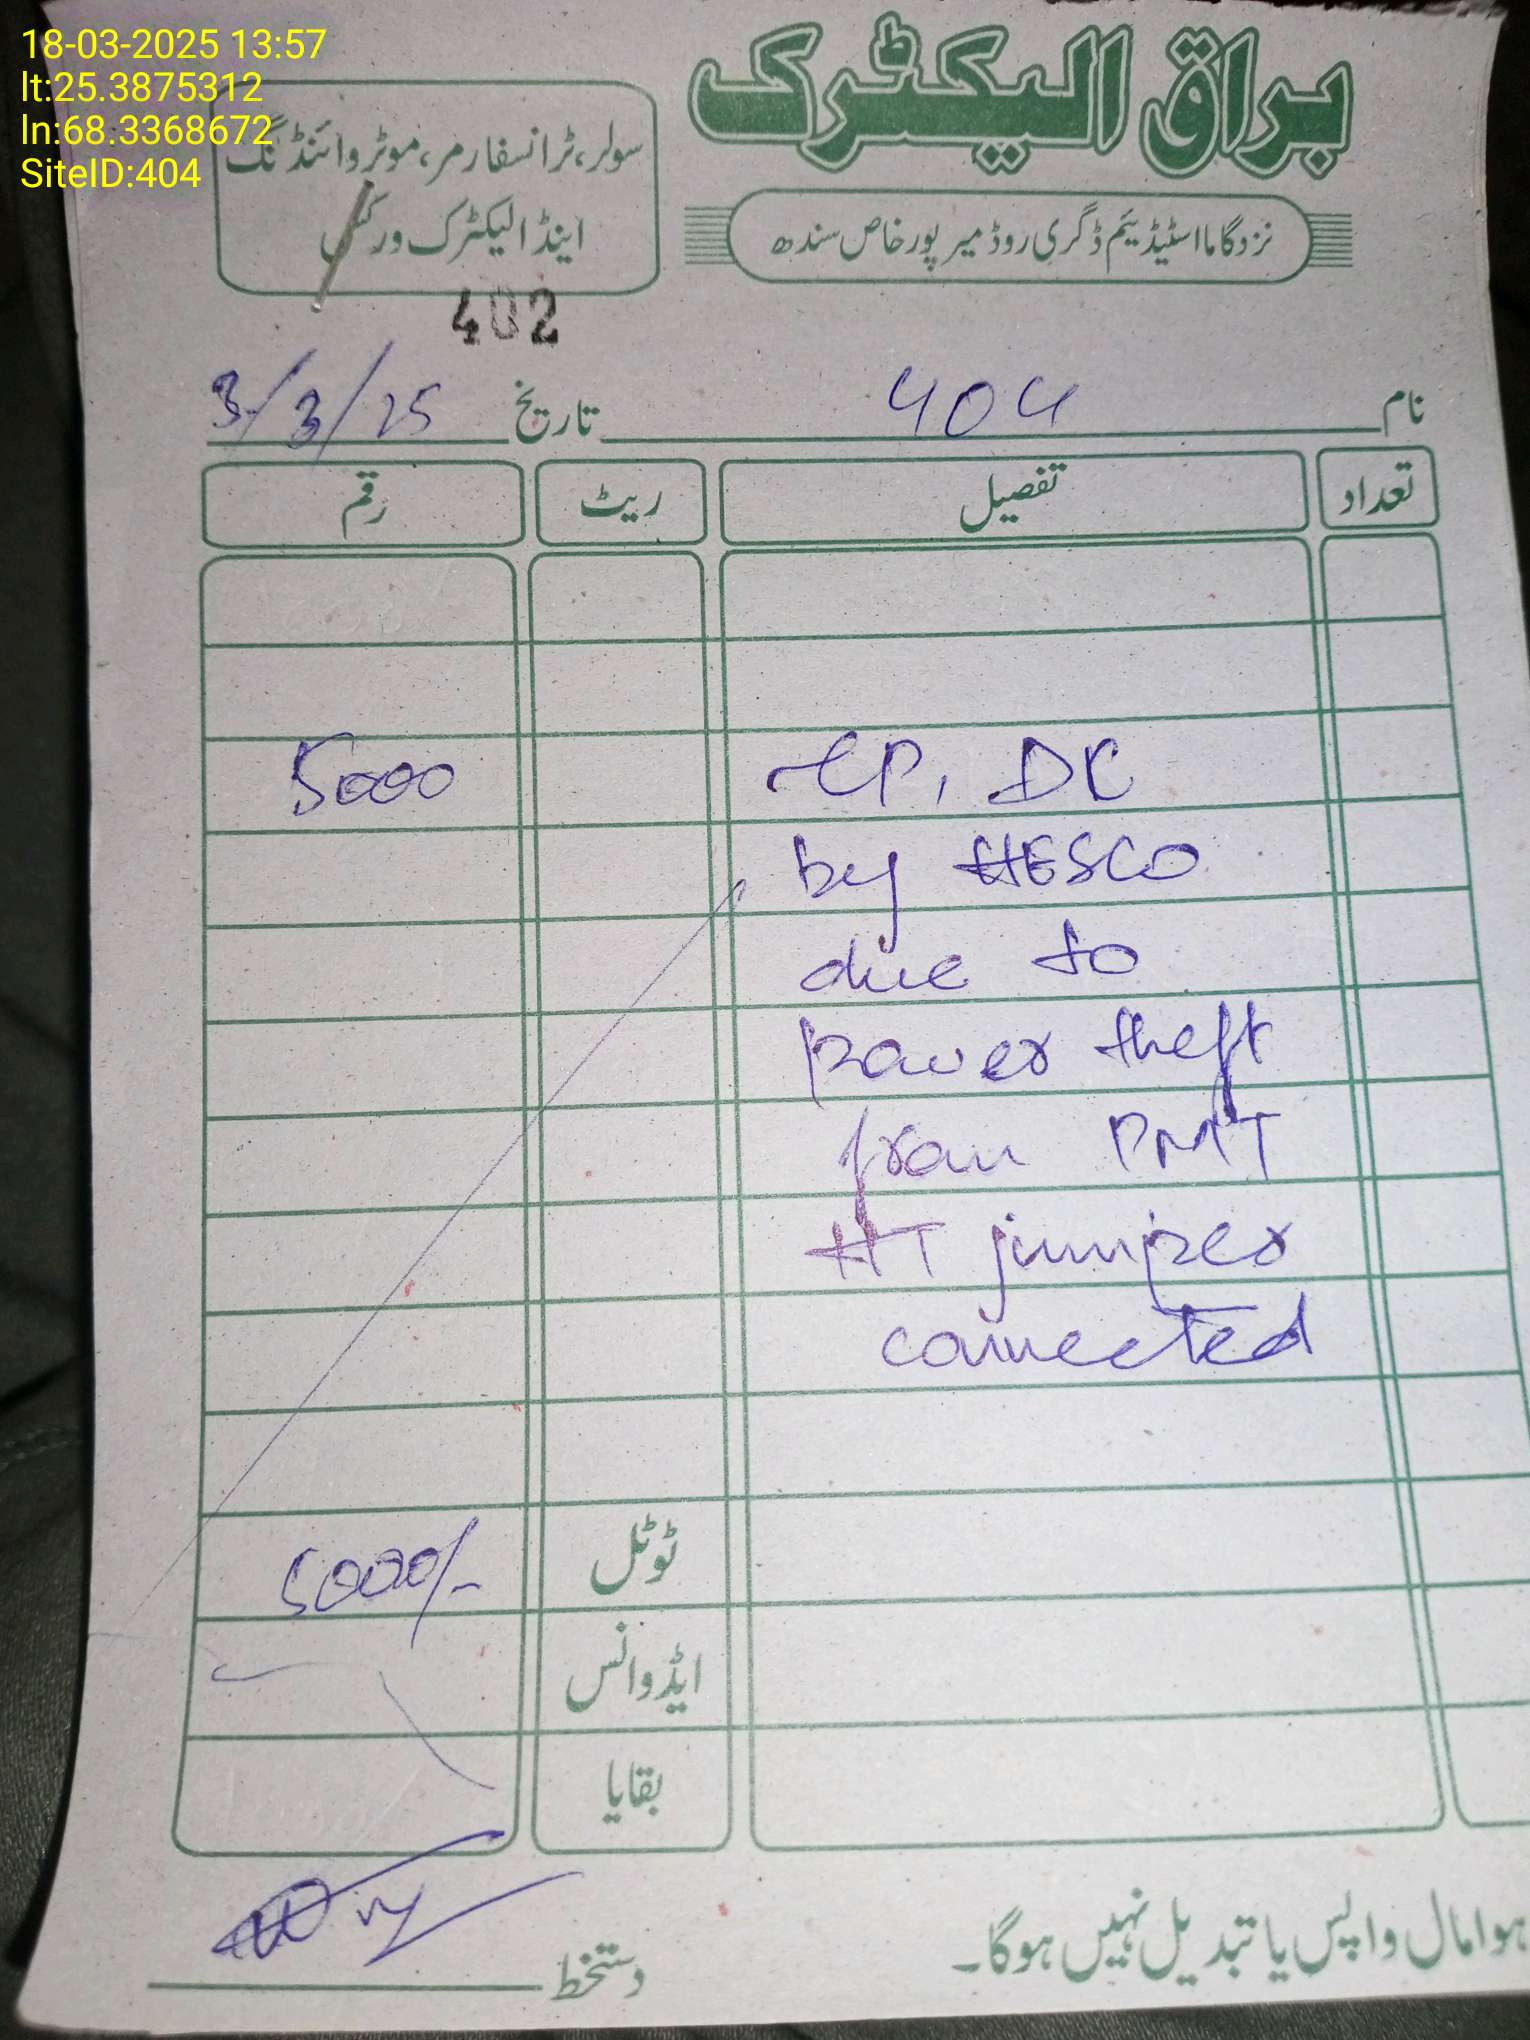 18-03-2025 13:57
lt:25.3875312
ln:68.3368672
SiteID:404
براق الیکٹرک
سولر، ٹرانسفارمر، موٹر وائنڈنگ
اینڈ الیکٹرک ورکس
نزد گاما اسٹیڈیئم ڈگری روڈ میرپورخاص سندھ
402
نام 404 تاریخ 3/3/25
تعداد تفصیل ریٹ رقم
CP, DC 5000
by HESCO
due to
power theft
from PMT
HT jumper
connected
ٹوٹل 5000/-
ایڈوانس
بقایا
ہوا مال واپس یا تبدیل نہیں ہوگا۔
دستخط